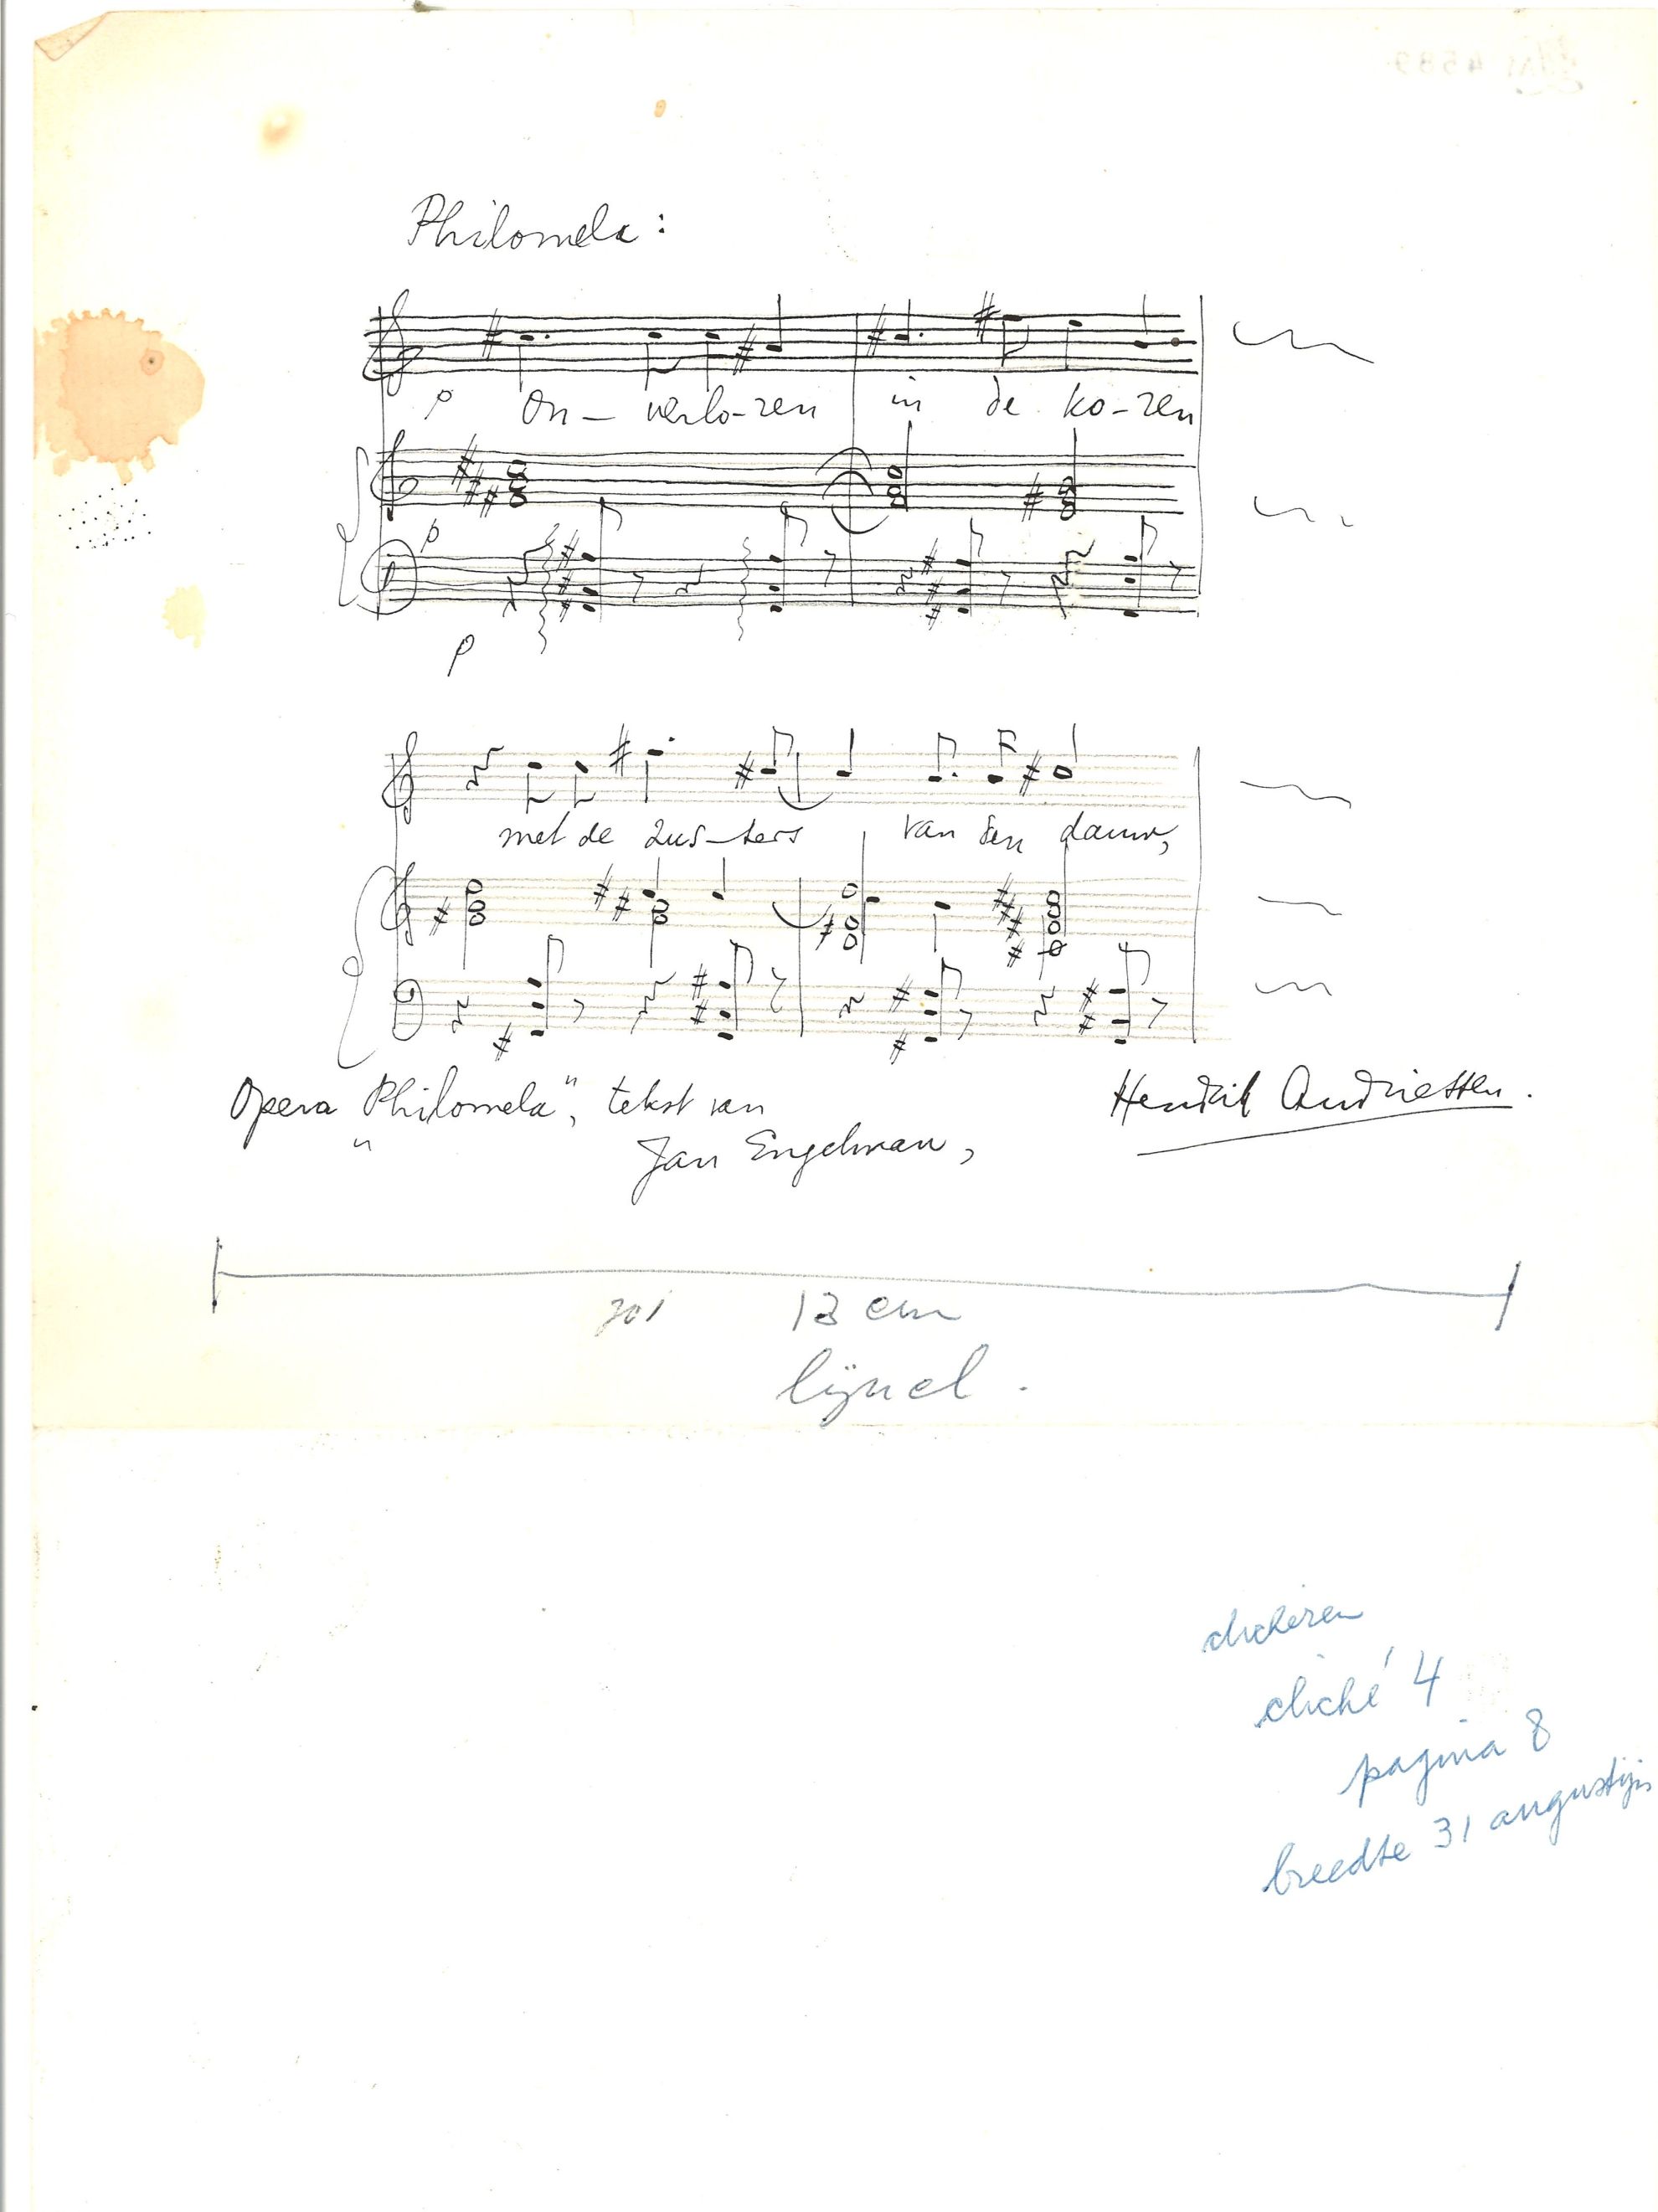 Philomela:
p On – verlo-ren in de ko-ren
p
p
met de zus-ters van den dauw,
Opera "Philomela", tekst van
Jan Engelman,
Hendrik Andriessen.
13 cm
lijncl.
clicheren
cliché 4
pagina 8
breedte 31 augustijn